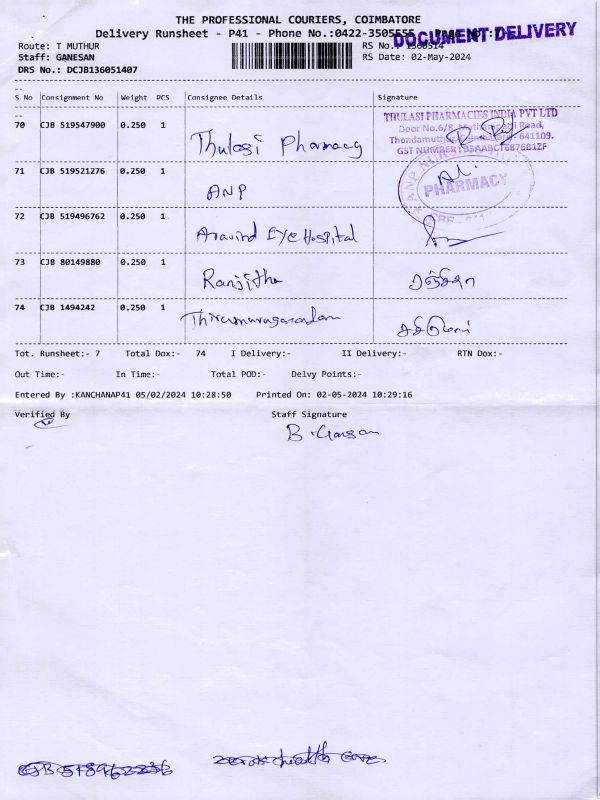 THE PROFESSIONAL COURIERS, COIMBATORE
Delivery Runsheet - P41 - Phone No.:0422-3505555
DOCUMENT DELIVERY
Route: T MUTHUR
RS No.: 1360514
Staff: GANESAN
RS Date: 02-May-2024
DRS No.: DCJB136051407
S No Consignment No Weight PCS Consignee Details Signature
70 CJB 519547900 0.250 1 Thulasi Pharmacy
THULASI PHARMACIES INDIA PVT LTD
Door No.6/8, Road,
641109.
GST NUMBER:
71 CJB 519521276 0.250 1 ANP
ANP
PHARMACY
72 CJB 519496762 0.250 1 Aravind Eye Hospital
73 CJB 80149880 0.250 1 Ranjitha
74 CJB 1494242 0.250 1
Tot. Runsheet:- 7 Total Dox:- 74 I Delivery:- II Delivery:- RTN Dox:-
Out Time:- In Time:- Total POD:- Delvy Points:-
Entered By :KANCHANAP41 05/02/2024 10:28:50 Printed On: 02-05-2024 10:29:16
Verified By Staff Signature